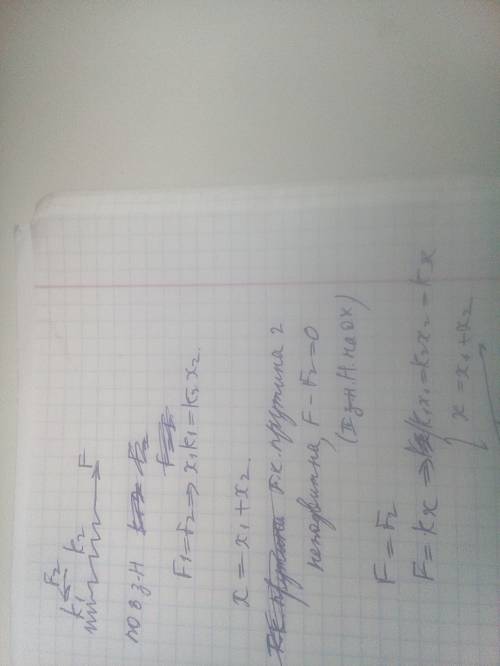 F₂
k₁ k₂ F
по 3 з. Н
F₁=F₂ => x₁k₁=k₂x₂
x = x₁+x₂
т.к. пружина 2
неподвижна, F-F₂=0
(II з-н. Н. на ox)
F = F₂
F = kx => k₁x₁=k₂x₂=kx
x = x₁+x₂